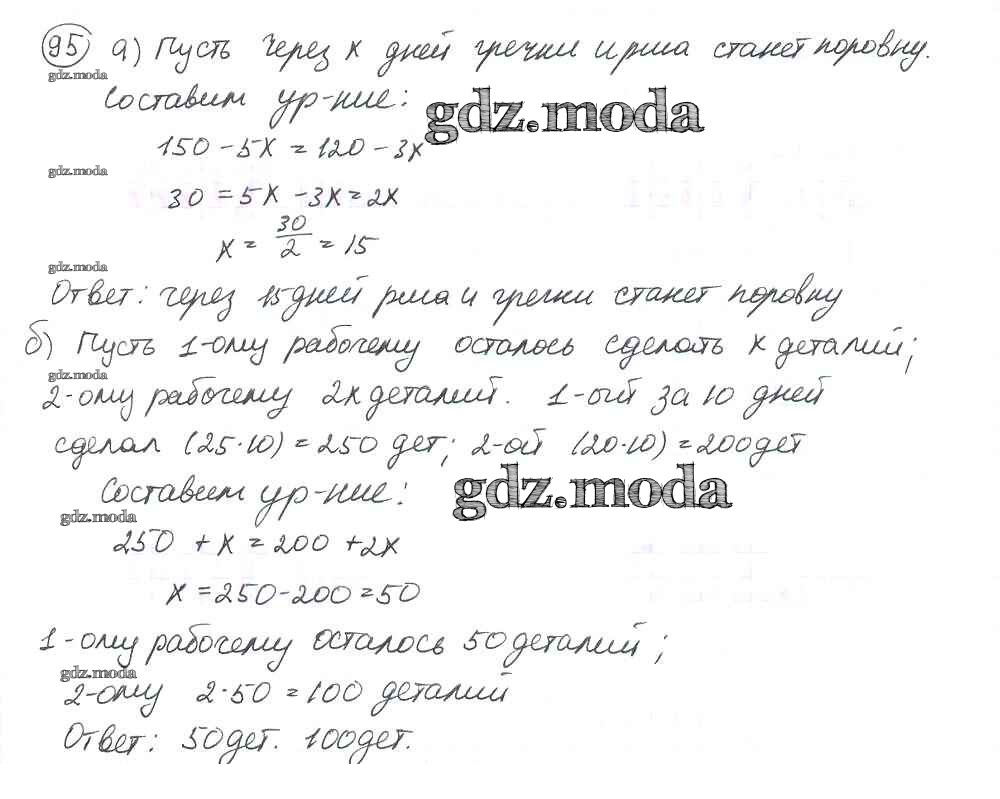 95 а) Пусть через x дней гречки и риса станет поровну.
gdz.moda
Составим ур-ние:
gdz.moda
150 - 5x = 120 - 3x
gdz.moda
30 = 5x - 3x = 2x
x = 30/2 = 15
gdz.moda
Ответ: через 15 дней риса и гречки станет поровну
б) Пусть 1-ому рабочему осталось сделать x деталий;
gdz.moda
2-ому рабочему 2x деталий. 1-ый за 10 дней
сделал (25·10) = 250 дет; 2-ой (20·10) = 200 дет
Составим ур-ние:
gdz.moda
gdz.moda
250 + x = 200 + 2x
x = 250 - 200 = 50
1-ому рабочему осталось 50 деталий;
gdz.moda
2-ому 2·50 = 100 деталий
Ответ: 50 дет. 100 дет.